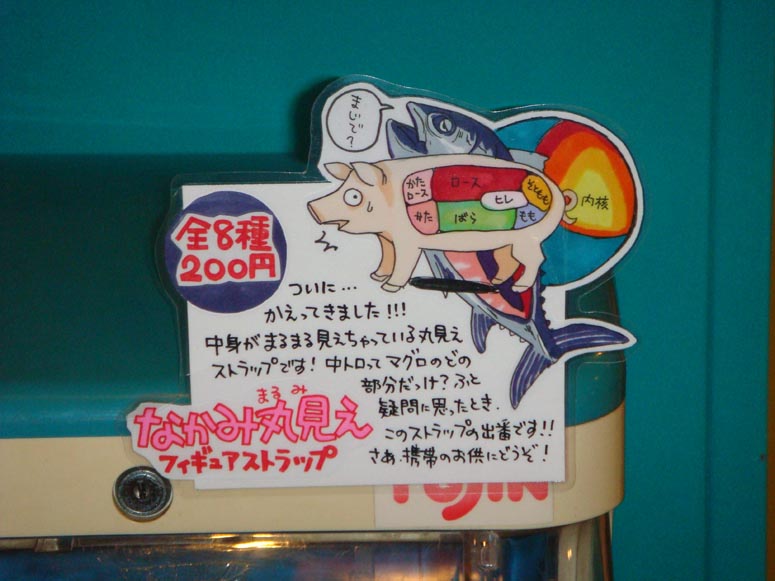 まじで?
かた
ロース
ロース
ヒレ
そともも
かた
ばら
もも
内核
全8種
200円
ついに…
かえってきました!!!
中身がまるまる見えちゃっている丸見え
ストラップです! 中トロってマグロのどの
部分だっけ?ふと
疑問に思ったとき、
このストラップの出番です!!
さあ、携帯のお供にどうぞ!
まるみ
なかみ丸見え
フィギュアストラップ
YUJIN